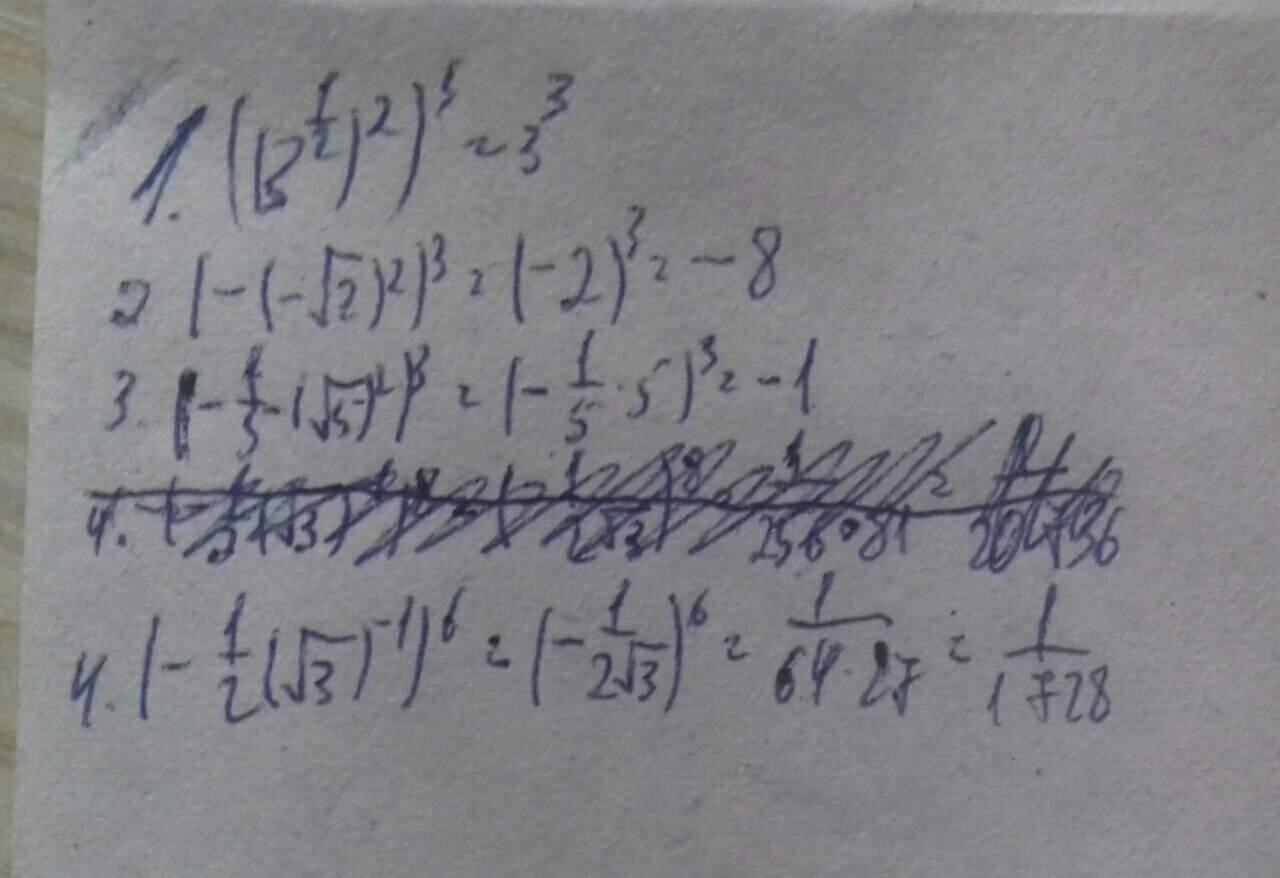 1. ((3^(1/2))^2)^3 = 3^3
2 (-(-√2)^2)^3 = (-2)^3 = -8
3. (-1/5 · (√5)^2)^3 = (-1/5 · 5)^3 = -1
4. (-1/2 (√3)^-1)^6 = (-1/(2√3))^6 = 1/(64 · 27) = 1/1728